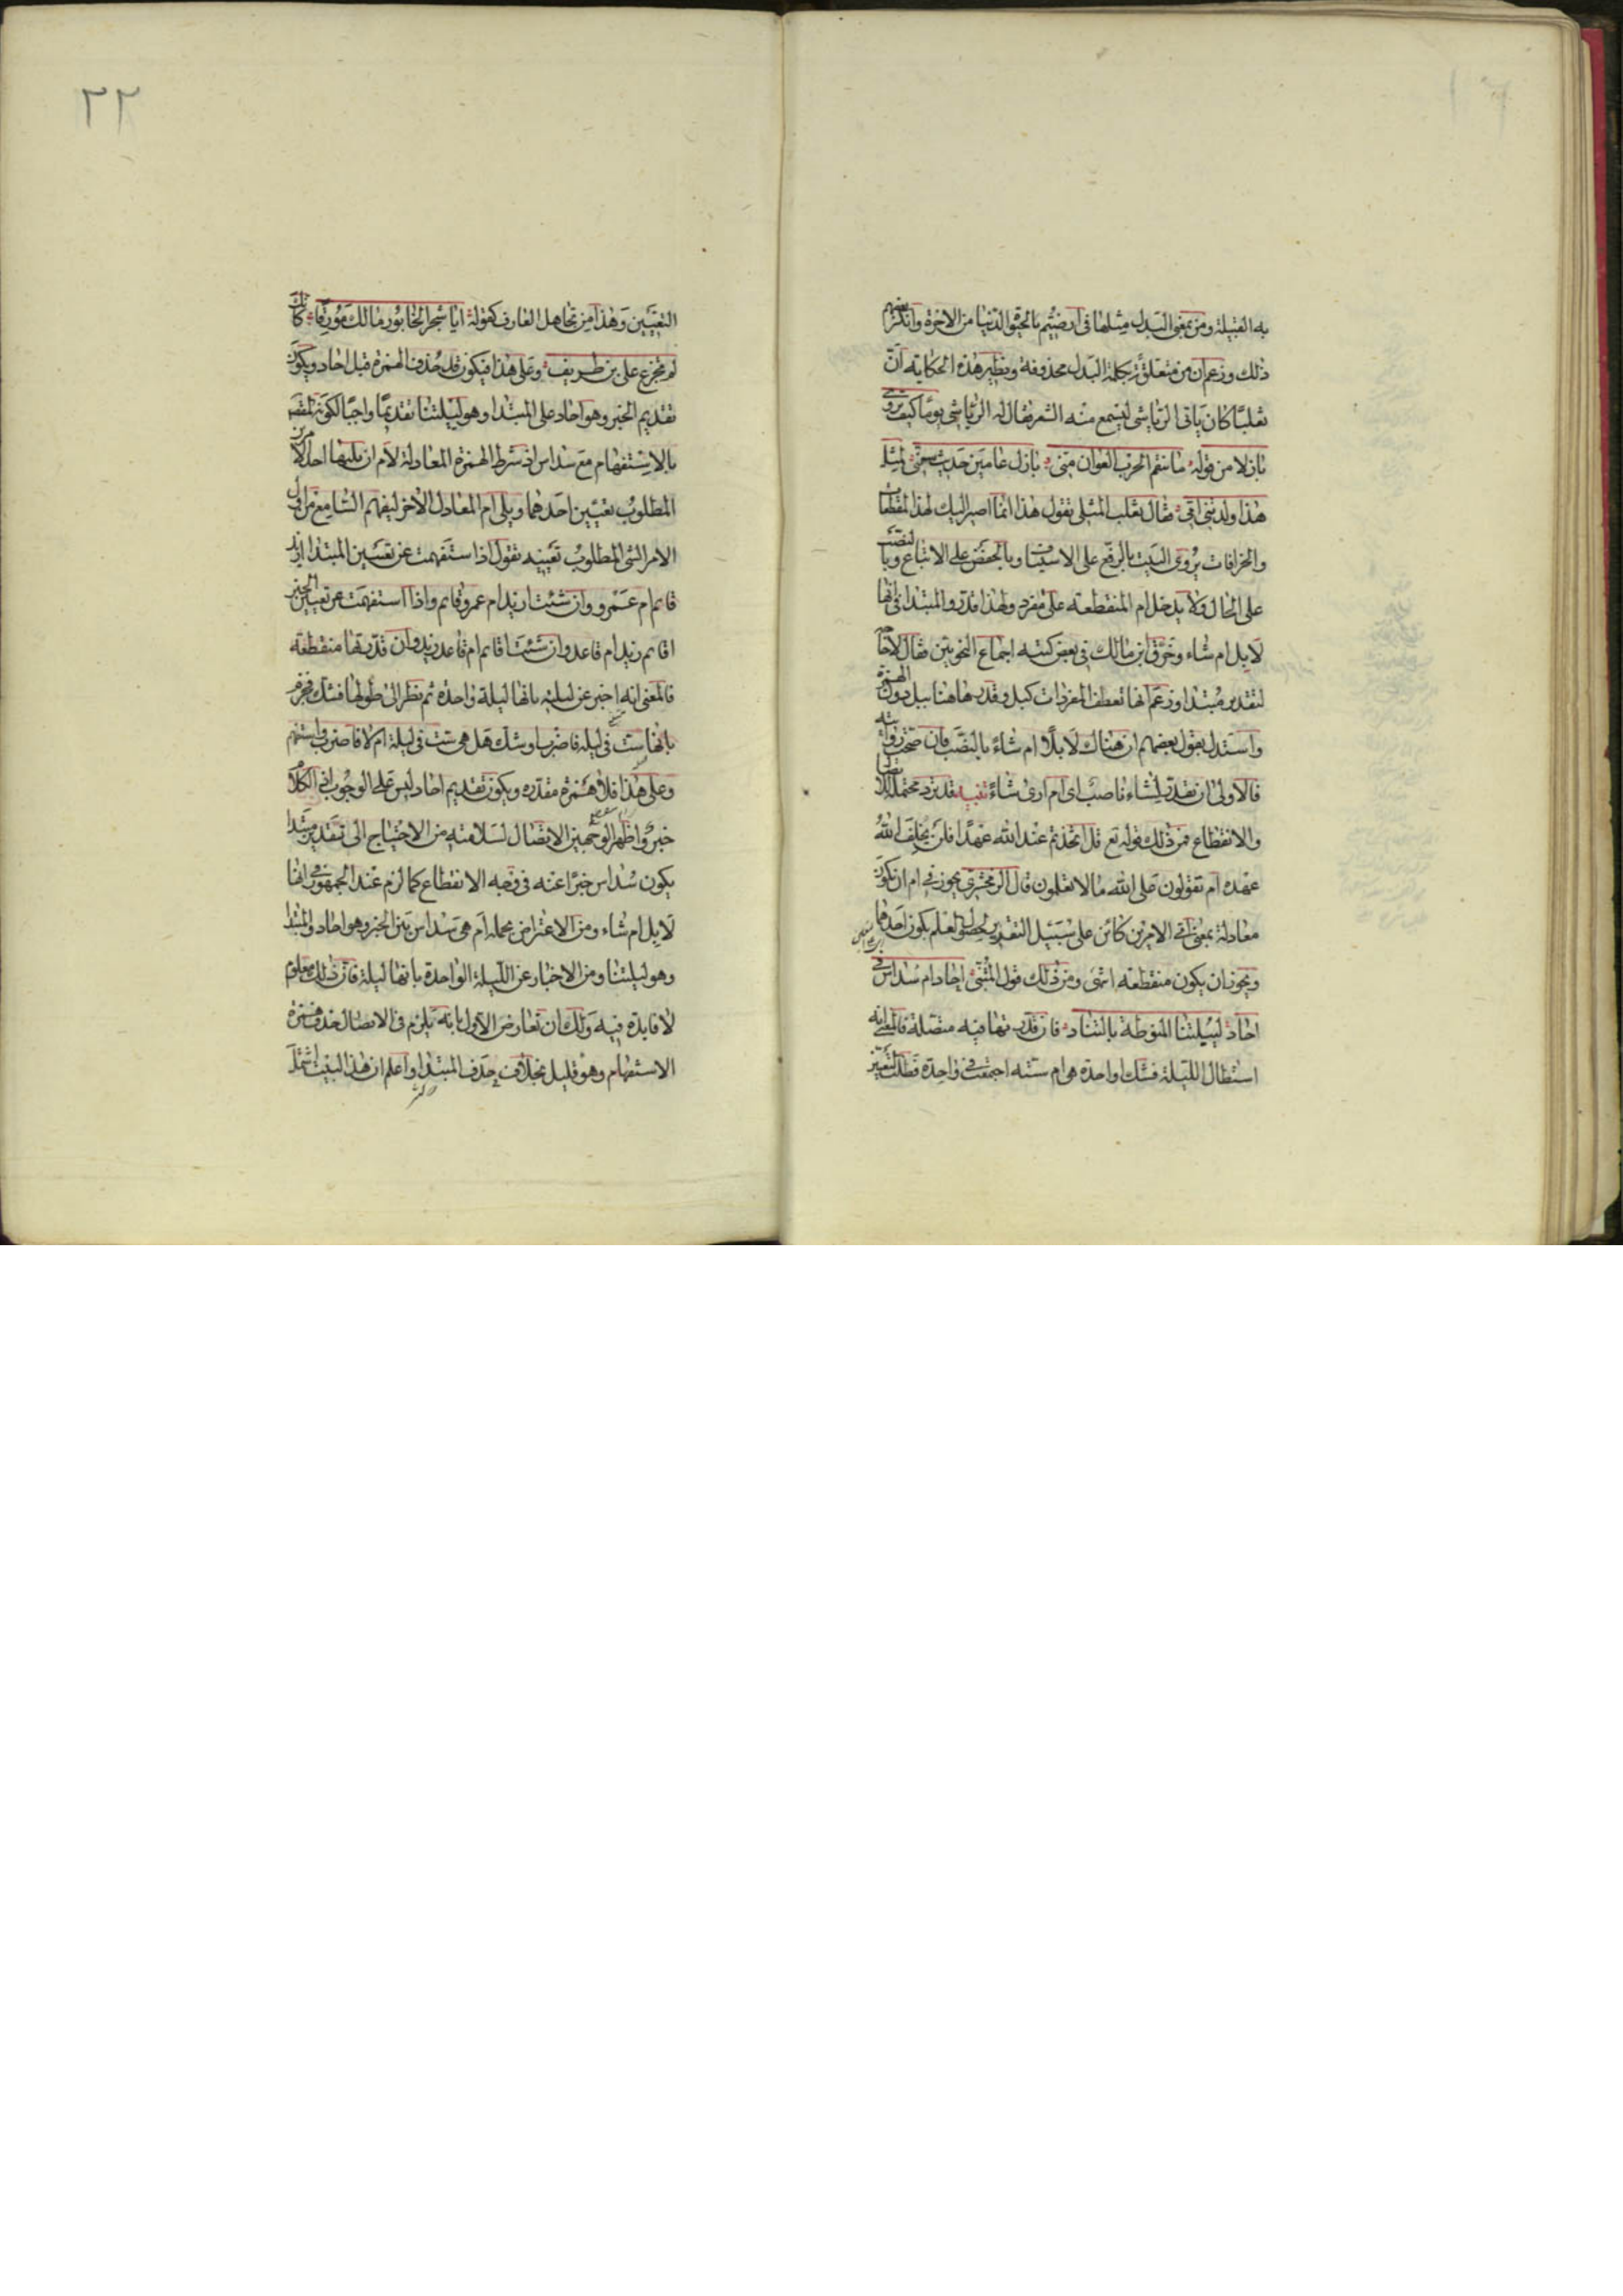 به القبيلة ومن بمعنى البدل مثلها في ارضيتم بالحيوة الدنيا من الاخرة وانكر بعضهم
ذلك وزعم ان من متعلقة بكلمة البدل محذوفة ونظير هذه الحكاية ان
ثعلبا كان ياتي الرياشي ليسمع منه الشعر فقال له الرياشي يوما كيف تروى
بازلا من قوله ما تنقم الحرب العوان منى بازل عامين حديث سنى لمثل
هذا ولدتنى امى فقال ثعلب المثلى تقول هذا انما اصير اليك لهذه المقطعات
والخرافات يروى البيت بالرفع على الاستيناف وبالخفض على الاتباع وبالنصب
على الحال ولا يدخل ام المنقطعة على مفرد ولهذا قدروا المبتدا في انها
لابل ام شاء وخرق ابن مالك في بعض كتبه اجماع النحويين فقال لا حاجة
لتقدير مبتدا وزعم انها تعطف المفردات كبل وقدرها هاهنا ببل دون الهمزة
واستدل بقول بعضهم ان هناك لابلا ام شاء بالنصب فان صحت روايته
فالاولى ان تقدر لشاء ناصب اى ام ارى شاء تنبيه قد ترد محتملة للاتصال
والانقطاع فمن ذلك قوله تع قل اتخذتم عند الله عهدا فلن يخلف الله
عهده ام تقولون على الله ما لا تعلمون قال الزمخشري يجوز في ام ان تكون
معادلة بمعنى اى الامرين كائن على سبيل التقرير لحصول العلم بكون احدهما
ويجوز ان يكون منقطعة انتهى ومن ذلك قول المتنبى احاد ام سداس في
احاد لييلتنا المنوطة بالتناد فان قدرتها فيه متصلة فالمعنى انه
استطال الليلة فشك اواحدة هى ام ستة اجتمعت في واحدة فطلب التعيين
٢٢
التعيين وهذا من تجاهل العارف كقوله ايا شجر الخابور مالك مورقا كانك
لم تجزع على بن طريف وعلى هذا فيكون قد حذف الهمزة قبل احاد ويكون
تقديم الخبر وهو احاد على المبتدا وهو لييلتنا تقديما واجبا لكونه المقصود
بالاستفهام مع سداس اذ شرط الهمزة المعادلة لام ان يليها احد الامرين
المطلوب تعيين احدهما ويلى ام المعادل الاخر ليفهم السامع من اول
الامر الشى المطلوب تعيينه تقول اذا استفهمت عن تعيين المبتدا ازيد
قايم ام عمرو وان شئت ازيد ام عمرو قايم واذا استفهمت عن تعيين الخبر
اقايم زيد ام قاعد وان شئت اقايم ام قاعد زيد وان قدرتها منقطعة
فالمعنى انه اخبر عن ليلته بانها ليلة واحدة ثم نظر الى طولها فشك فجزم
بانها ست في ليلة فاضرب او شك هل هى ست في ليلة ام لا فاضرب واستفهم
وعلى هذا فلا همزة مقدره ويكون تقديم احاد ليس على الوجوب اذ الكلام
خبر واظهر الوجهين الاتصال لسلامته من الاحتياج الى تقدير مبتدا
يكون سداس خبرا عنه في وجه الانقطاع كما لزم عند الجمهور في انها
لابل ام شاء ومن الاعتراض بجملة ام هى سداس بين الخبر وهو احاد والمبتدا
وهو لييلتنا ومن الاخبار عن الليلة الواحدة بانها ليلة فان ذلك معلوم
لا فايدة فيه ولك ان تعارض الاول بانه يلزم في الاتصال حذف همزة
الاستفهام وهو قليل بخلاف حذف المبتدا واعلم ان هذا البيت اشتمل